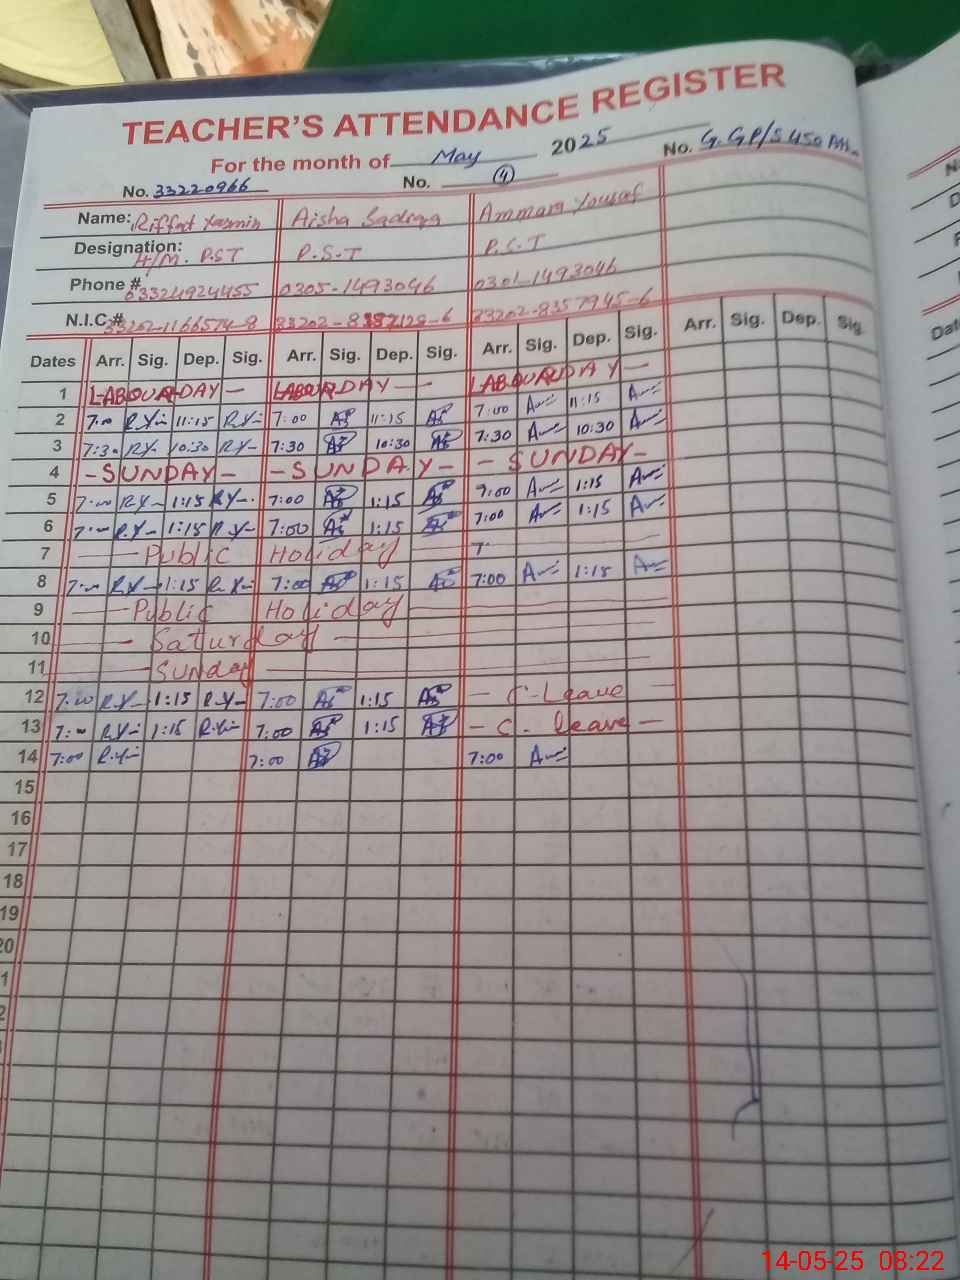 TEACHER'S ATTENDANCE REGISTER
For the month of May 2025 No. G.GP/S 450
No. 33220966 No. 4
Name: Riffat Yasmin Aisha Sadiqa Ammara Yousaf
Designation: H/M. P.ST P.S.T P.S.T
Phone # 03324924455 0305-1493046 0301-1493046
N.I.C.# 33202-1166574-8 33202-8357945-6
Dates Arr. Sig. Dep. Sig. Arr. Sig. Dep. Sig. Arr. Sig. Dep. Sig. Arr. Sig. Dep. Sig.
1 LABOUR DAY — LABOUR DAY — LABOUR DAY —
2 7:00 R.Y 11:15 R.Y 7:00 As 11:15 As 7:00 A 11:15 A
3 7:30 R.Y 10:30 R.Y 7:30 As 10:30 As 7:30 A 10:30 A
4 - SUNDAY - - SUNDAY - - SUNDAY -
5 7:00 R.Y 1:15 R.Y 7:00 As 1:15 As 7:00 A 1:15 A
6 7:00 R.Y 1:15 R.Y 7:00 As 1:15 As 7:00 A 1:15 A
7 Public Holiday 7
8 7:00 R.Y 1:15 R.Y 7:00 As 1:15 As 7:00 A 1:15 A
9 Public Holiday
10 Saturday
11 Sunday
12 7:00 R.Y 1:15 R.Y 7:00 As 1:15 As - C-Leave -
13 7:00 R.Y 1:15 R.Y 7:00 As 1:15 As - C. leave -
14 7:00 R.Y 7:00 As 7:00 A
15
16
17
18
19
20
1
2
14-05-25 08:22